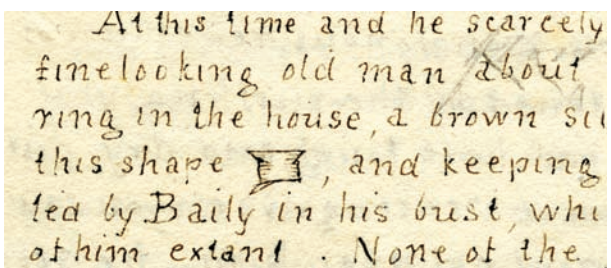 At this time and he scarcely
fine looking old man about
ring in the house, a brown
this shape , and keeping
ted by Baily in his bust, whi
of him extant . None of the